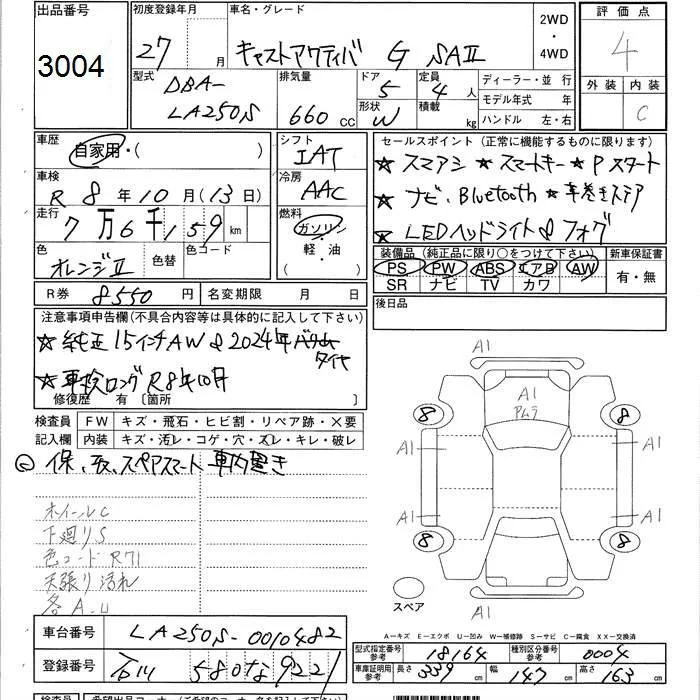 出品番号
3004
初度登録年月
27 年 月
車名・グレード
キャストアクティバ G SAⅡ
2WD
・
4WD
評価点
4
外装 内装
C
型式
DBA-
LA250S
排気量
660 cc
ドア
5
形状
W
定員
4 人
積載
kg
ディーラー・並行
モデル年式 年
ハンドル 左・右
車歴
自家用・( )
シフト
IAT
車検
R 8 年 10 月 (13 日)
冷房
AAC
走行
7 万 6 千 159 km
燃料
ガソリン
・
軽・油
色
オレンジⅡ
色替
色コード
R券 8550 円
名変期限 月 日
セールスポイント(正常に機能するものに限ります)
★スマアシ ★スマートキー ★Pスタート
★ナビ、Bluetooth ★革巻きステア
★LEDヘッドライト&フォグ
装備品(純正品に限り○をつけて下さい)
新車保証書
PS PW ABS エアB AW
SR ナビ TV カワ
有・無
後日品
注意事項申告欄(不具合内容等は具体的に記入して下さい)
★純正15インチAW&2024年
タイヤ
★車検ロングR8年10月
修復歴 有〔箇所 〕
検査員
記入欄
FW キズ・飛石・ヒビ割・リペア跡・X要
内装 キズ・汚レ・コゲ・穴・スレ・キレ・破レ
保、取、スペアスマート車内置き
ホイールC
下廻りS
色コードR71
天張り汚れ
各A-U
A1
A1
アムラ
8
8
A1
A1
A1
A1
8
8
スペア
A1
A-キズ E-エクボ U-凹み W-補修跡 S-サビ C-腐食 XX-交換済
車台番号
LA250S-0010482
登録番号
石川 580 な 9221
型式指定番号
参考
18164
種別区分番号
参考
0004
車庫証明用
参考
長さ 339 cm
幅 147 cm
高さ 163 cm
検査員